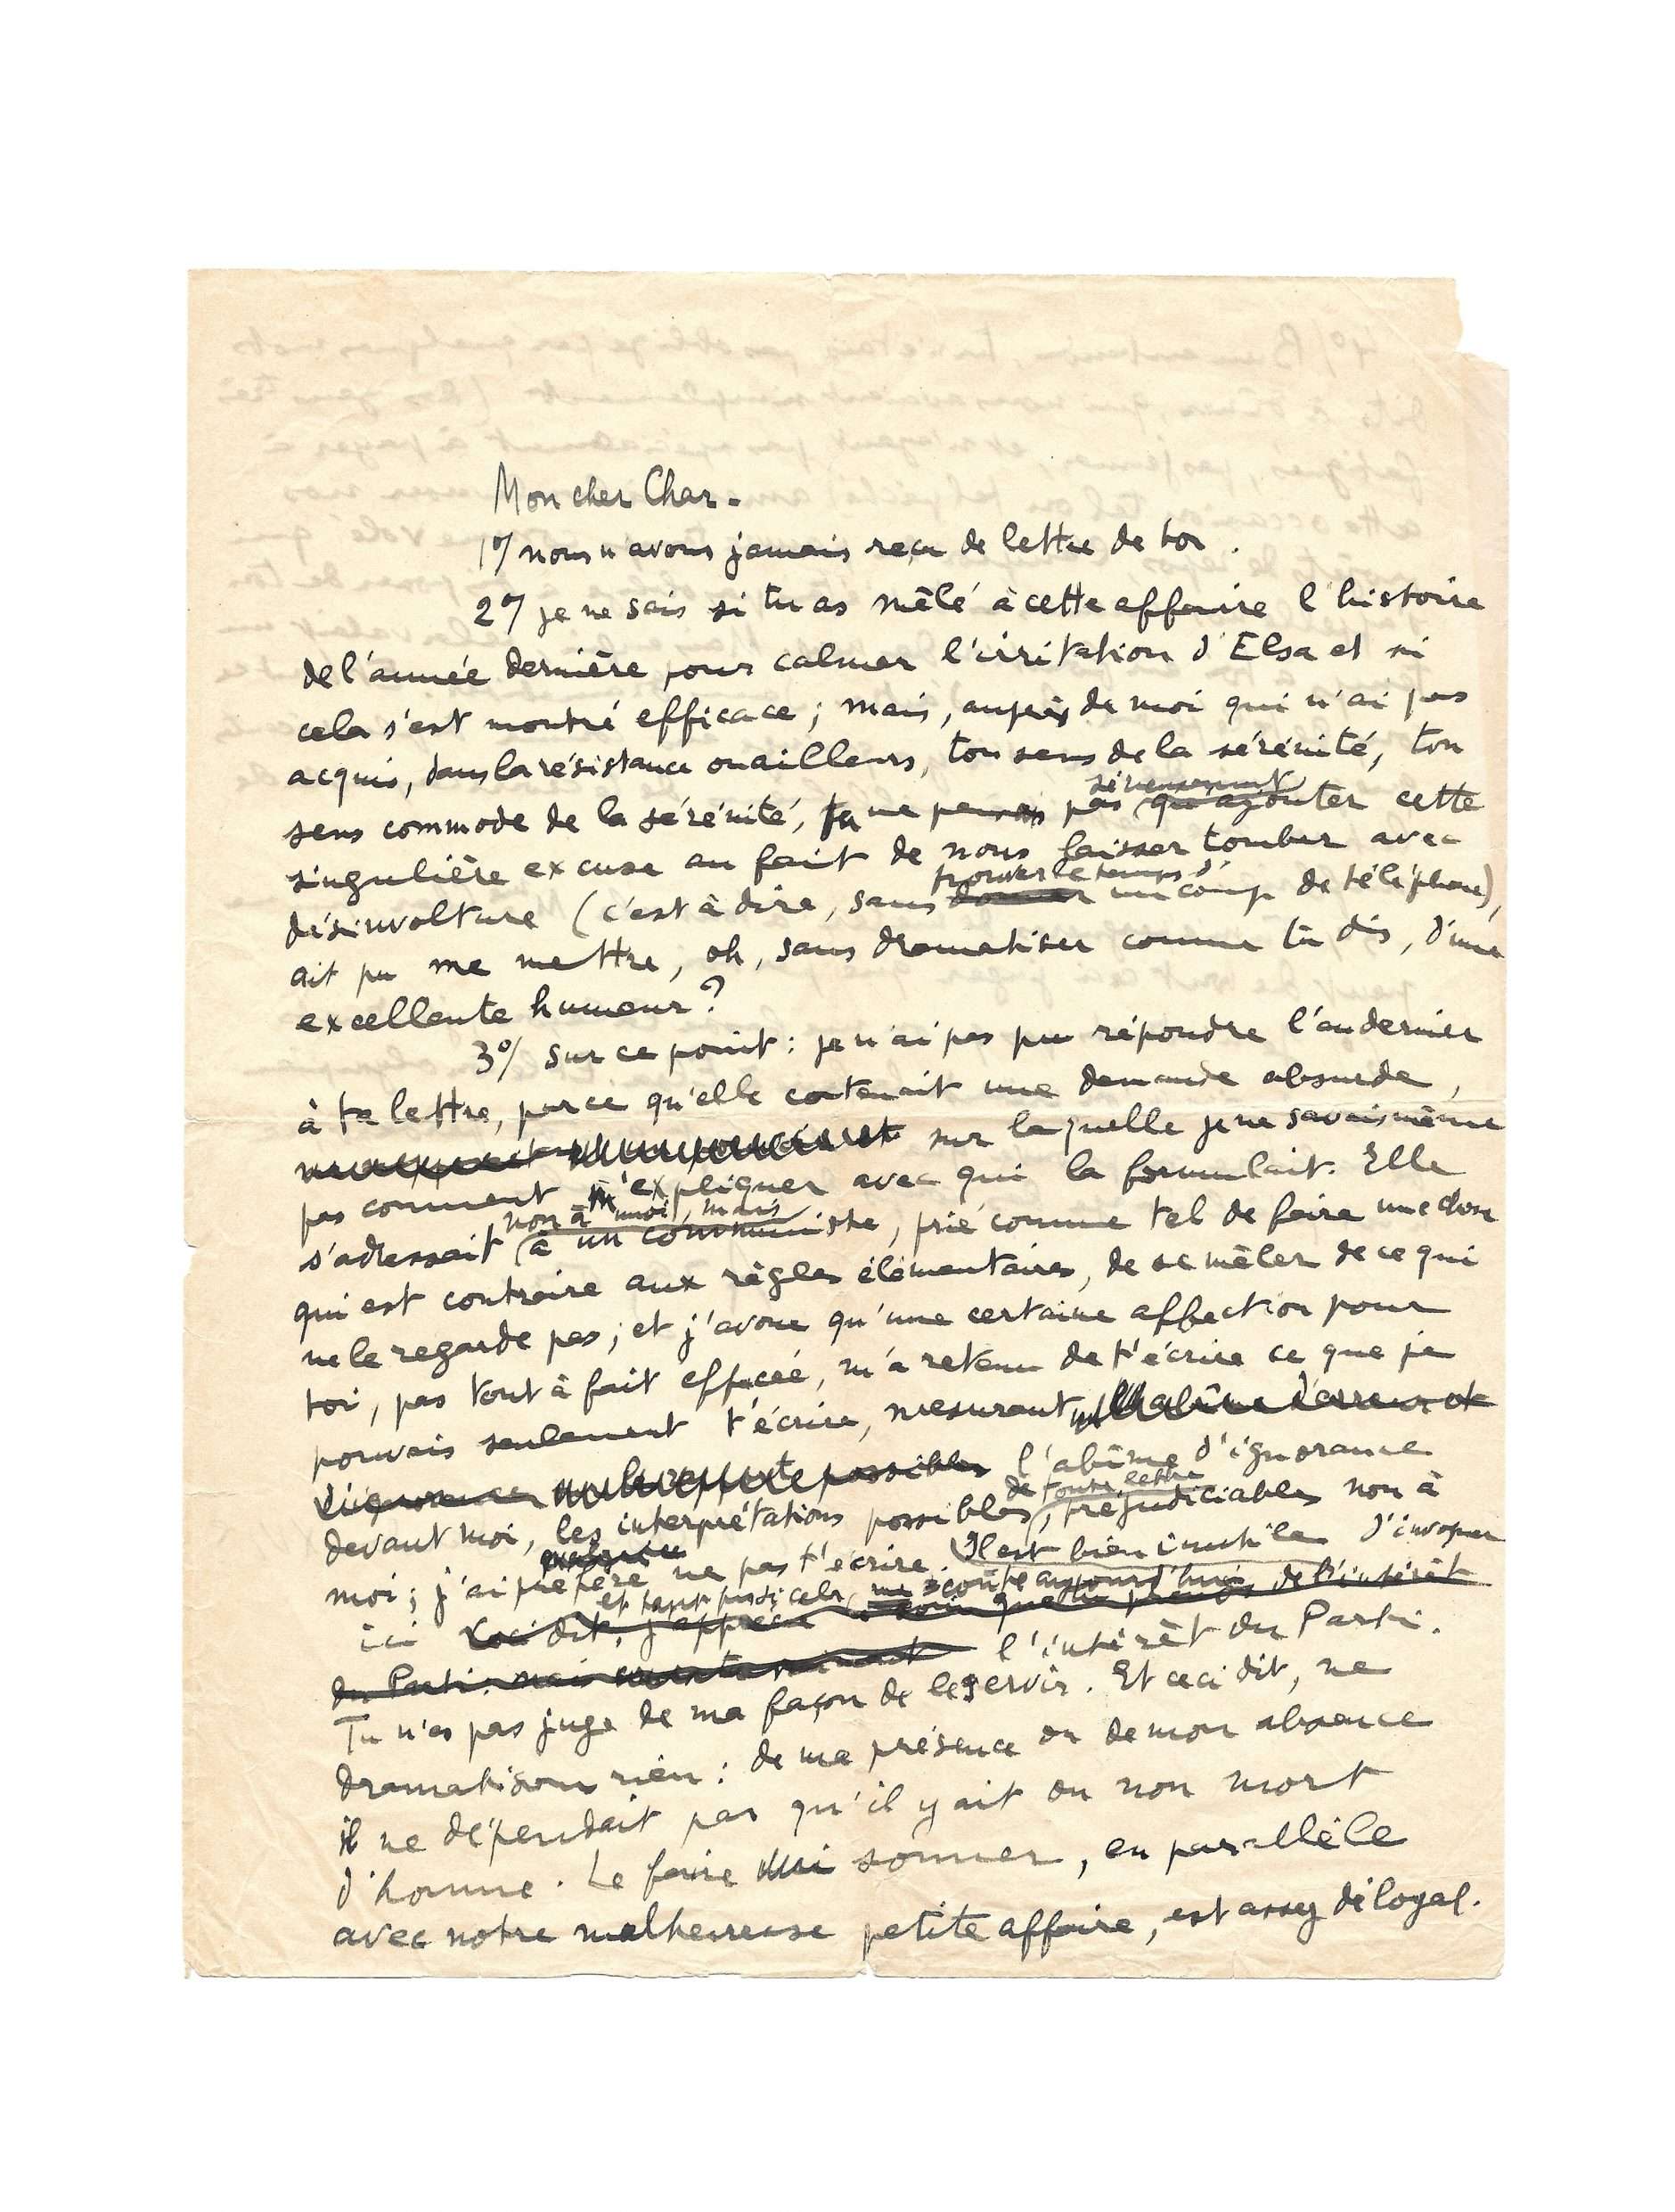 Mon cher Char.
1°/ nous n'avons jamais reçu de lettre de toi.
2°/ je ne sais si tu as mêlé à cette affaire l'histoire
de l'année dernière pour calmer l'irritation d'Elsa et si
cela s'est montré efficace ; mais, auprès de moi qui n'ai pas
acquis, dans la résistance ou ailleurs, ton sens de la sérénité, ton
sérieusement
sens commode de la sérénité, tu ne penses pas qu'ajouter cette
singulière excuse au fait de nous laisser tomber avec
trouver le temps d'
désinvolture (c'est à dire, sans donner un coup de téléphone),
ait pu me mettre, oh, sans dramatiser comme tu dis, d'une
excellente humeur ?
3°/ Sur ce point : je n'ai pas pu répondre l'an dernier
à ta lettre, parce qu'elle contenait une demande absurde,
sur laquelle je ne savais même
pas comment m'expliquer avec qui la formulait. Elle
non à moi, mais
s'adressait à un communiste, prié comme tel de faire une chose
qui est contraire aux règles élémentaires, de se mêler de ce qui
ne le regarde pas ; et j'avoue qu'une certaine affection pour
toi, pas tout à fait effacée, m'a retenu de t'écrire ce que je
pouvais seulement t'écrire, mesurant l'abîme d'erreur et
d'ignorance possibles l'abîme d'ignorance
de toute lettre
devant moi, les interprétations possibles, préjudiciables non à
moi ; j'ai préféré ne pas t'écrire. Il est bien inutile d'invoquer
aujourd'hui
ici Ceci dit, j'apprécie le soin que tu prends de l'intérêt
du Parti, mais l'intérêt du Parti.
Tu n'es pas juge de ma façon de le servir. Et ceci dit, ne
dramatisons rien : de ma présence ou de mon absence
il ne dépendait pas qu'il y ait ou non mort
d'homme. Le faire sonner, en parallèle
avec notre malheureuse petite affaire, est assez déloyal.